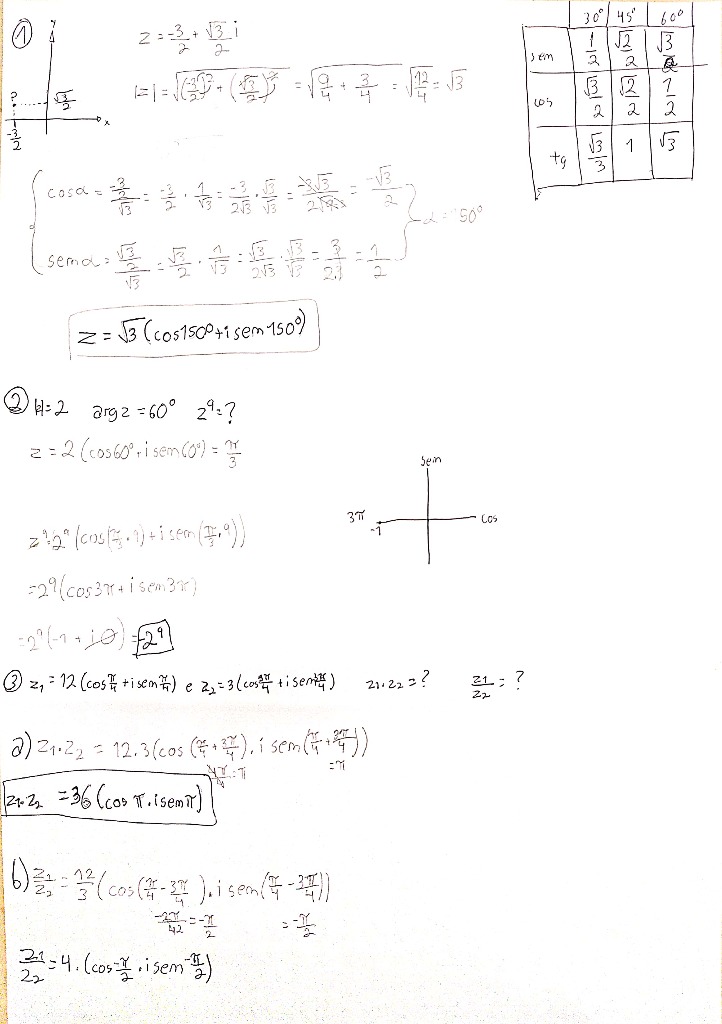 ① y z = -3/2 + √3/2 i
|z| = √((-3/2)² + (√3/2)²) = √(9/4 + 3/4) = √(12/4) = √3
? √3/2
-3/2 x
30° 45° 60°
sem 1/2 √2/2 √3/2
cos √3/2 √2/2 1/2
tg √3/3 1 √3
cosα = (-3/2)/√3 = -3/2 · 1/√3 = -3/2√3 · √3/√3 = -3√3/2√9 = -√3/2
α = 150°
semα = (√3/2)/√3 = √3/2 · 1/√3 = √3/2√3 · √3/√3 = 3/2.3 = 1/2
z = √3 (cos150° + i sem150°)
② |z| = 2 arg z = 60° z⁹ = ?
z = 2 (cos60° + i sem60°) = π/3
sem
cos
3π -1
z⁹ = 2⁹ (cos(π/3 . 9) + i sem(π/3 . 9))
= 2⁹ (cos3π + i sem3π)
= 2⁹ (-1 + i0) = -2⁹
③ z₁ = 12 (cos π/4 + i sem π/4) e z₂ = 3 (cos 3π/4 + i sem 3π/4) z₁.z₂ = ? z₁/z₂ = ?
a) z₁.z₂ = 12.3 (cos (π/4 + 3π/4) . i sem (π/4 + 3π/4))
4π/4 = π = π
z₁.z₂ = 36 (cos π . i sem π)
b) z₁/z₂ = 12/3 (cos (π/4 - 3π/4) . i sem (π/4 - 3π/4))
-2π/42 = -π/2 = -π/2
z₁/z₂ = 4 . (cos -π/2 . i sem -π/2)